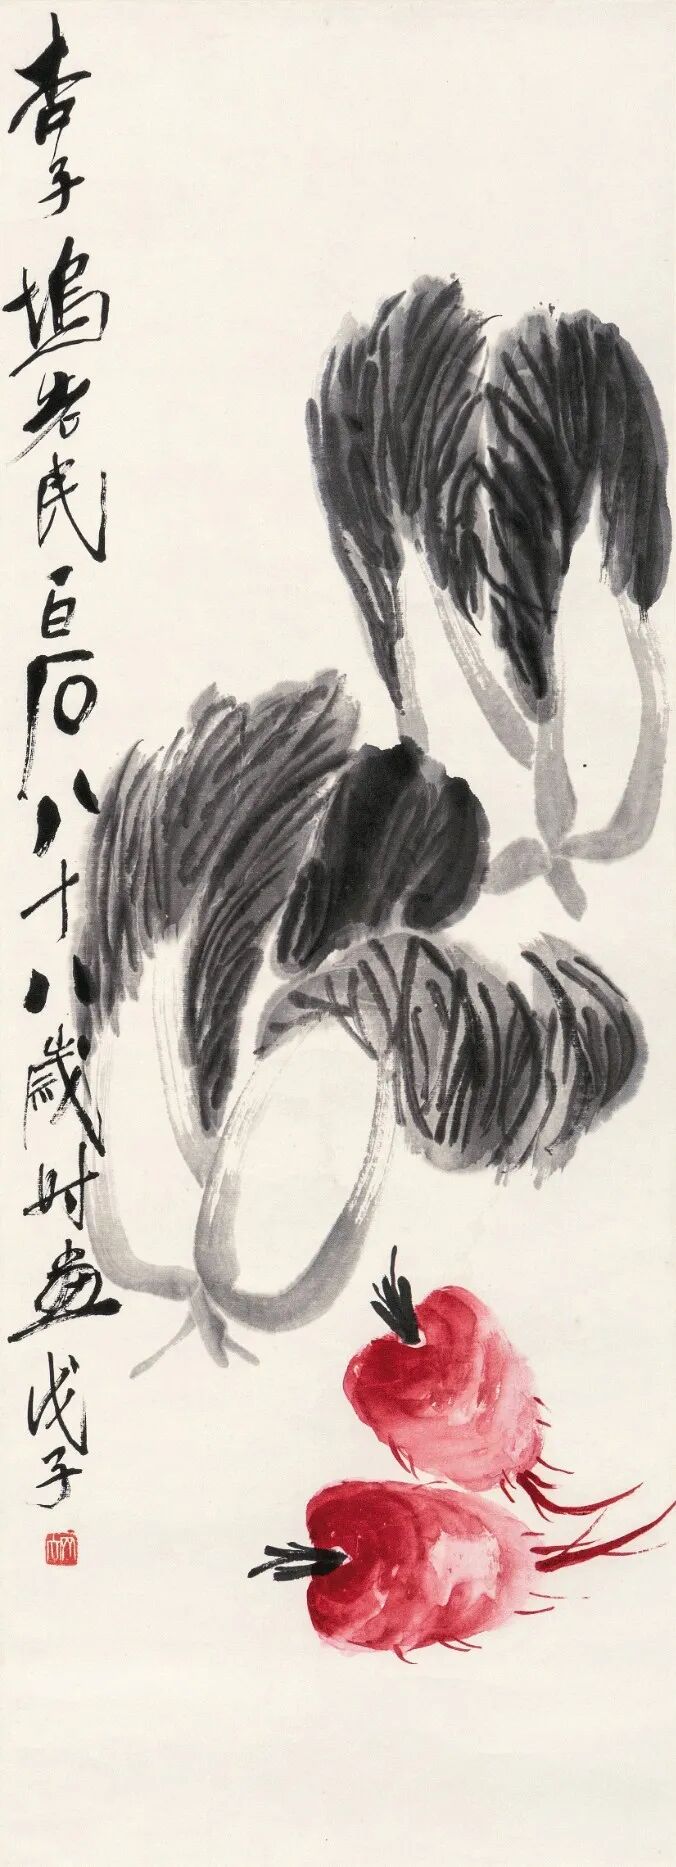 杏子塢老民白石八十八歲时畫戊子